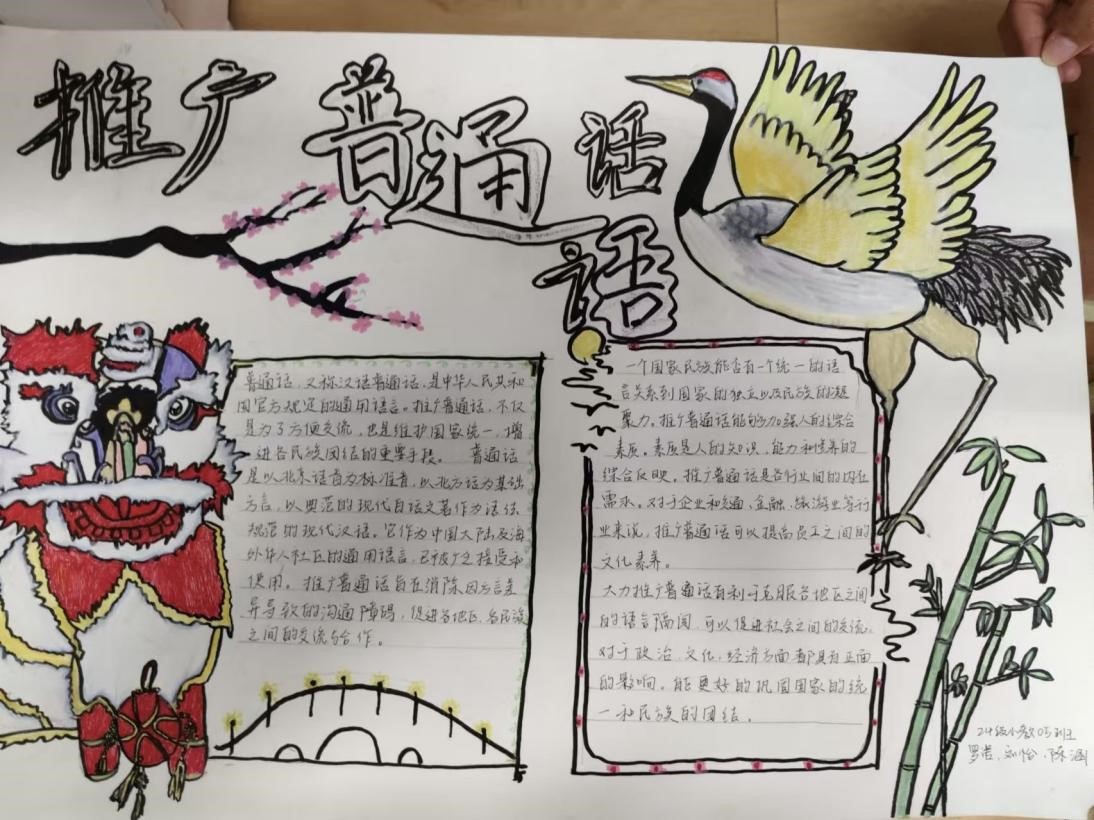 推广普通话
话
普通话，又称汉语普通话，是中华人民共和
国官方规定的通用语言。推广普通话，不仅
是为了方便交流，也是维护国家统一，增
进各民族团结的重要手段。 普通话
是以北京语音为标准音，以北方话为基础
方言，以典范的现代白话文著作为语法
规范的现代汉语。它作为中国大陆及海
外华人社区的通用语言，已被广泛接受和
使用。推广普通话旨在消除因方言差
异导致的沟通障碍，促进各地区、各民族
之间的交流与合作。
一个国家民族能否有一个统一的语
言关系到国家的独立以及民族的凝
聚力。推广普通话能够加强人的综合
素质。素质是人的知识，能力和修养的
综合反映。推广普通话是各行业间的内在
需求。对于企业和交通、金融、旅游业等行
业来说，推广普通话可以提高员工之间的
文化素养。
大力推广普通话有利于克服各地区之间
的语言隔阂，可以促进社会之间的交流，
对于政治、文化、经济方面都具有正面
的影响。能更好的巩固国家的统
一和民族的团结。
24级小教05班
罗 、刘怡、陈涵